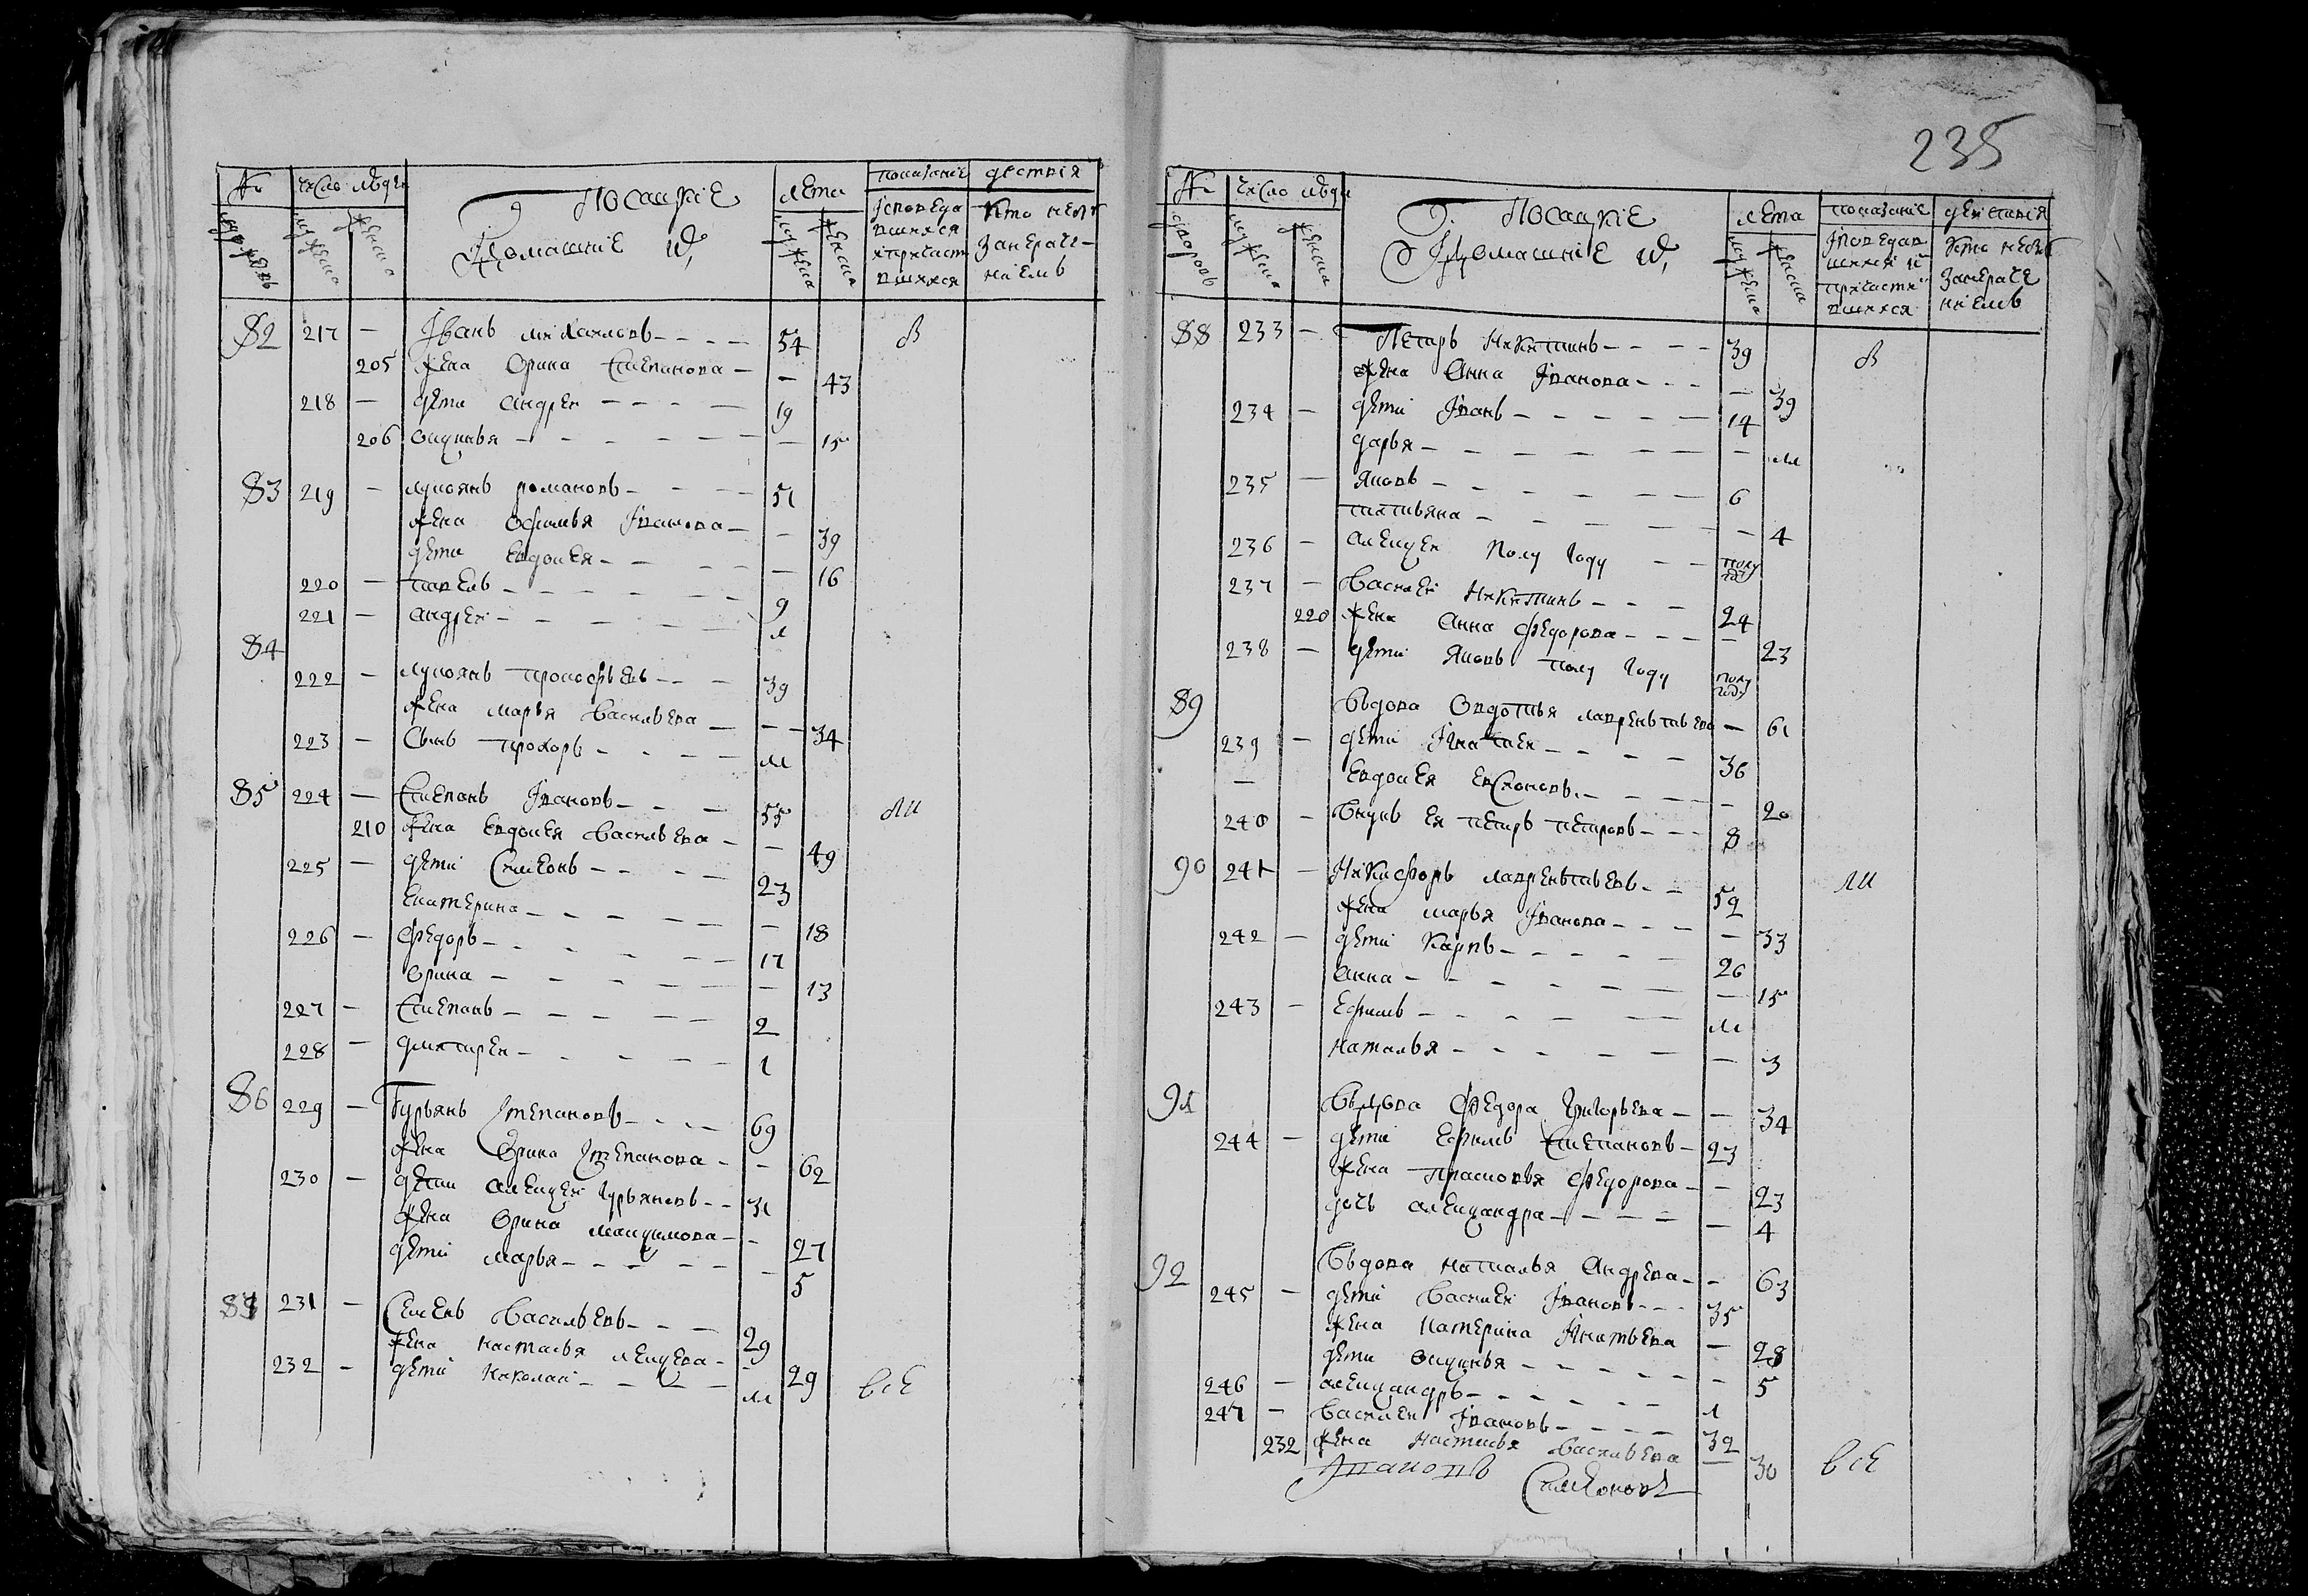 235
№ число людей Посацкие лета показание действия
дворовъ мужеска женска и домашние ихъ мужеска женска исповеда вшихся и причаст вшихся кто не былъ за нераче ниемъ
82 217 — Иванъ Михаиловъ 54
205 жена Орина Степанова — 43
218 — дети Андреи 19
206 Оксинья — 15
83 219 — Лукоянъ Романовъ 51
жена Офимья Иванова — 39
дети Евдокея — 16
220 — Павелъ 9
221 — Андреи 1
84
222 — Лукоянъ Прокофьевъ 39
жена Марья Васильева — 34
223 — Сынъ Прохоръ
85 224 — Степанъ Ивановъ 55
210 жена Евдокея Васильева — 49
225 — дети Симеонъ 23
Екатерина — 18
226 — Федоръ 17
Орина — 13
227 — Степанъ 2
228 — Дмитреи 1
86 229 — Гурьянъ Степановъ 69
жена Орина Степанова — 62
230 — дети Алексеи Гурьяновъ 31
жена Орина Максимова — 27
дети Марья — 5
87 231 — Семенъ Васильевъ 29
жена Настасья Лексева — 29
232 — дети Николаи все
№ число люди Посацкие лета показание действия
дворовъ мужеска женска и домашние ихъ мужеска женска исповедав шихся и причасти вшихся кто не былъ за нераче ниемъ
88 233 — Петръ Никитинъ 39
жена Анна Иванова — 39
234 — дети Иванъ 14
Дарья —
235 — Яковъ 6
Татьяна — 4
236 — Алексеи полу году полу год
237 — Василеи Никитинъ 24
220 жена Анна Федорова — 23
238 — дети Яковъ полу году полу год
89 Вдова Овдотья Лаврентьева — 61
239 — дети Игнатеи 36
— Евдокея — 20
240 — Внукъ ея Петръ Петровъ 8
90 241 — Никифоръ Лаврентьевъ 52
жена Марья Иванова — 33
242 — дети Карпъ 26
Анна — 15
243 — Ефимъ
Наталья — 3
91 Вдова Федора Григорьева — 34
244 — дети Ефимъ Степановъ 23
жена Прасковья Федорова — 23
дочь Александра — 4
92 Вдова Наталья Андрева — 63
245 — дети Василеи Ивановъ 35
жена Катерина Игнатьева — 28
дети Оксинья — 5
246 — Александръ 1
247 — Василеи Ивановъ 32
232 жена Настасья Васильева — 30 все
Симеоновъ